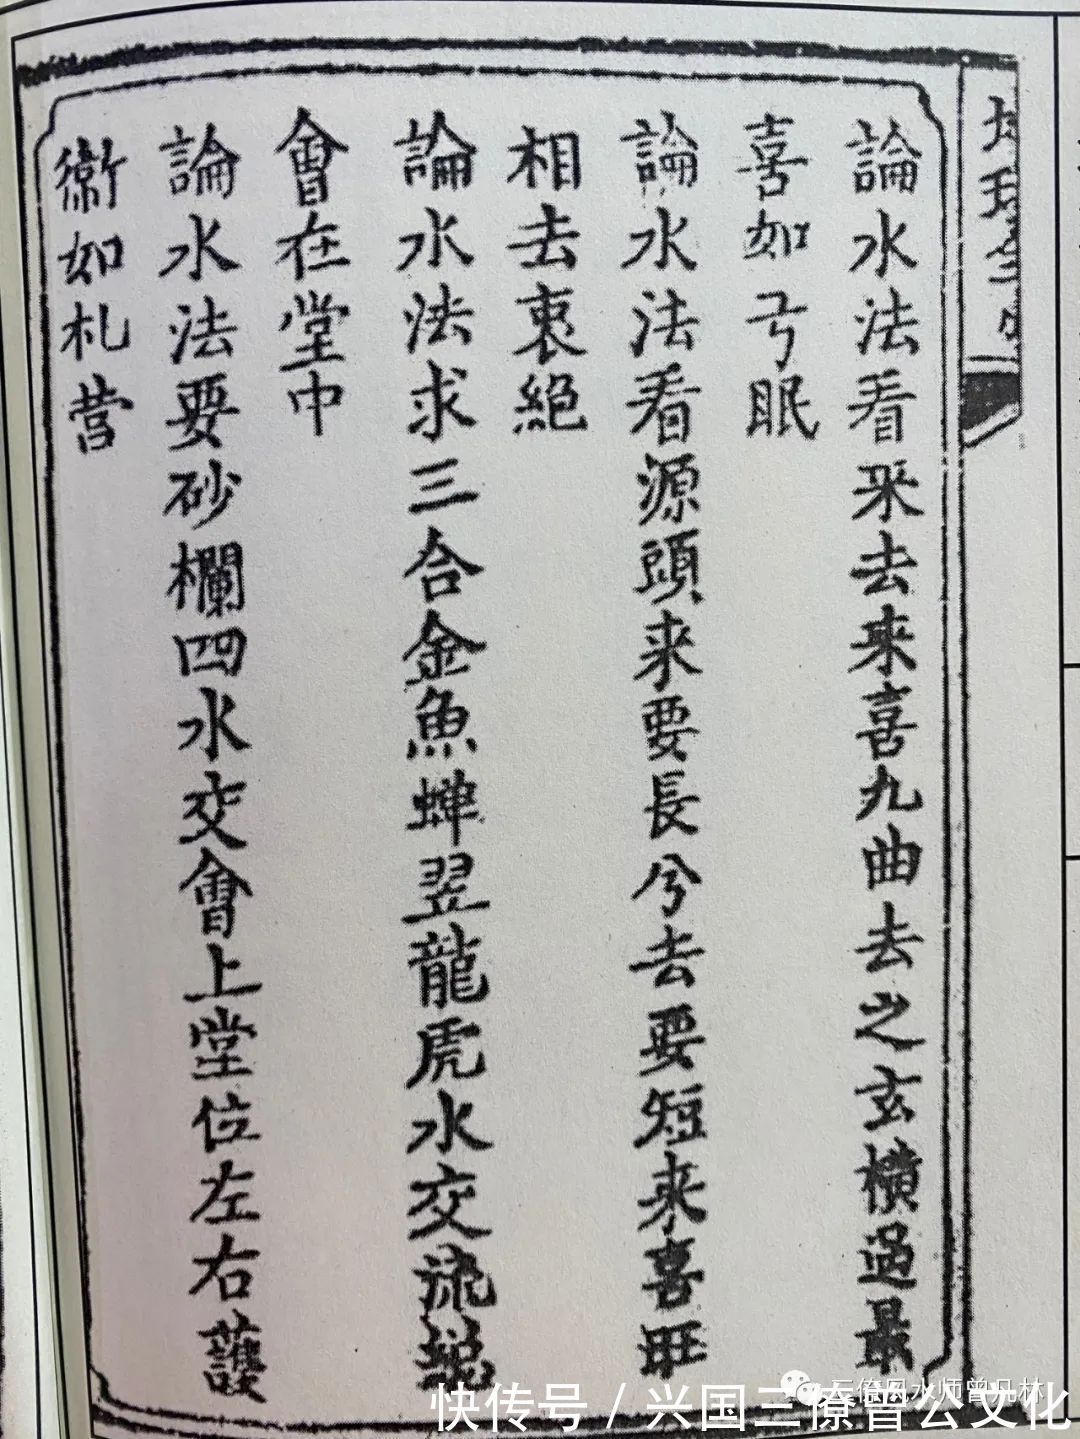 論水法看来去来喜九曲去之玄橫過最
喜如弓眠
論水法看源頭来要長兮去要短来喜旺
相去衰絕
論水法求三合金魚蟬翌龍虎水交流總
會在堂中
論水法要砂欄四水交會上堂位左右護
衛如札營
快传号／兴国三僚曾公文化
三僚风水师曾凡林